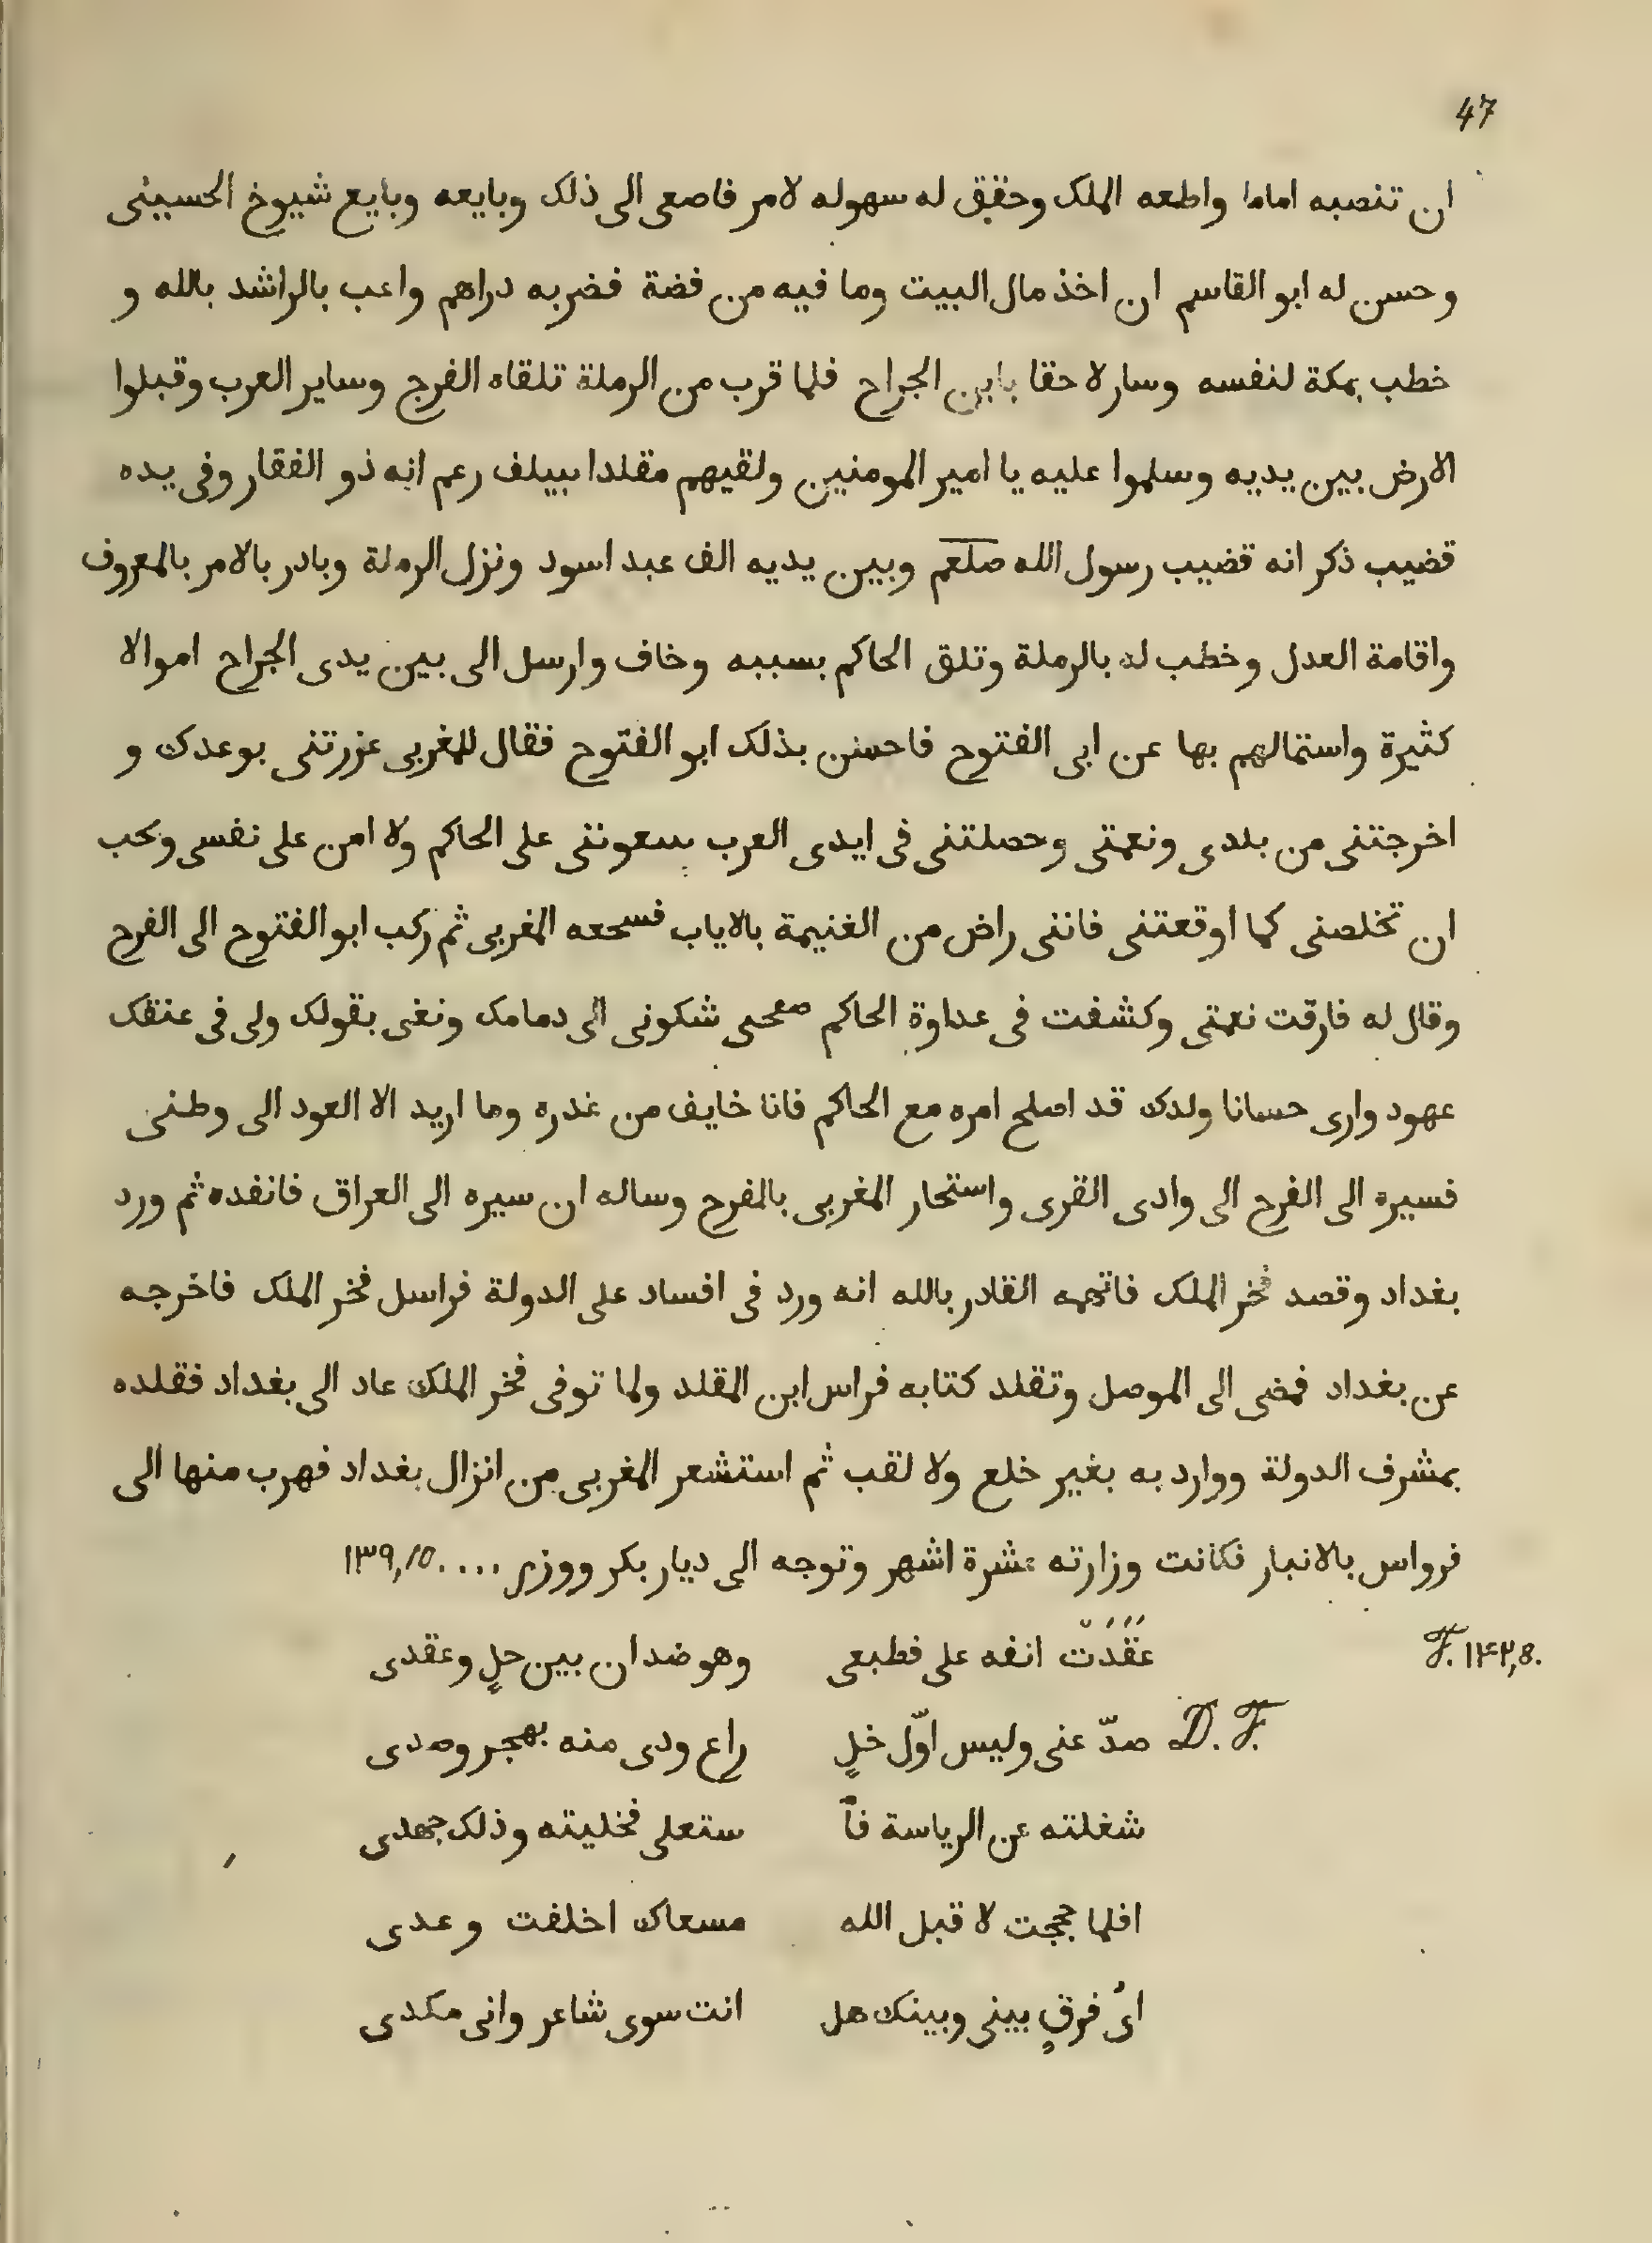 47
ان تنصبه اماما واطعه الملک وحقق له سهوله لامر فاصعى الى ذلک وبايعه وبايع شيوخ الحسينى
وحسن له ابو القاسم ان اخذ مال البيت وما فيه من فضة فضربه دراهم واعب بالراشد بالله و
خطب بمكة لنفسه وسار لاحقا بابن الجراح فلما قرب من الرملة تلقاه الفرج وساير العرب وقبلوا
الارض بين يديه وسلموا عليه يا امير المومنين ولقيهم مقلدا سيلف رعم انه ذو الفقار وفى يده
قضيب ذكر انه قضيب رسول الله صلعم وبين يديه الف عبد اسود ونزل الرملة وبادر بالامر بالمعروف
واقامة العدل وخطب له بالرملة وتلق الحاكم بسببه وخاف وارسل الى بين يدى الجراح اموالا
كثيرة واستمالهم بها عن ابى الفتوح فاحسن بذلک ابو الفتوح فقال للمغربى عزرتنى بوعدک و
اخرجتنى من بلدى ونعمتى وحصلتنى فى ايدى العرب سعوننى على الحاكم ولا امن على نفسى وبحب
ان تخلصنى كما اوقعتنى فاننى راض من الغنيمة بالاياب فسحعه المغربى ثم ركب ابو الفتوح الى الفرح
وقال له فارقت نعمتى وكشفت فى عداوة الحاكم صفحى شكونى الى دمامک ونغى بقولک ولى فى عنقک
عهود وارى حسانا ولدک قد اصلح امره مع الحاكم فانا خايف من غدره وما اريد الا العود الى وطنى
فسيره الى الفرح الى وادى القرى واستحار المغربى بالمفرح وساله ان سيره الى العراق فانفده ثم ورد
بغداد وقصد فخر الملک فاتهمه القادر بالله انه ورد فى افساد على الدولة فراسل فخر الملک فاخرجه
عن بغداد فمضى الى الموصل وتقلد كتابه فراس ابن المقلد ولما توفى فخر الملک عاد الى بغداد فقلده
بمشرف الدولة ووارد به بغير خلع ولا لقب ثم استشعر المغربى من انزال بغداد فهرب منها الى
فرواس بالانبار فكانت وزارته عشرة اشهر وتوجه الى ديار بكر ووزر .... ۱۳۹,۱۵
F. ۱۴۲,8. عَقَدَتْ انفه على فطبعى وهو ضدان بين حلٍ وعقدى
D. F. صدّ عنى وليس اوّل خلٍ راع ودى منه بهجر وصدى
شغلته عن الرياسة فآ ستعلى فخليته وذلک جهدى
افلما حججت لا قبل الله مسعاک اخلفت وعدى
اىُ فرقٍ بينى وبينک هل انت سوى شاعر وانى مكدى